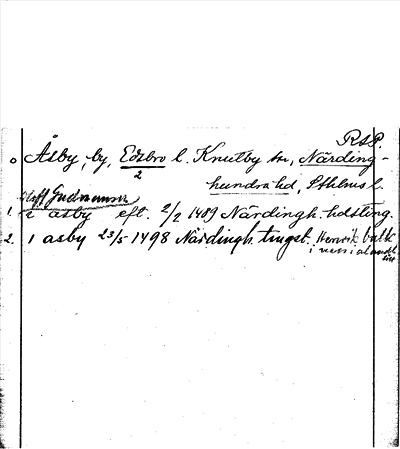 RSP.
o Åsby, by, Edsbro l. Knutby sn, Närding-
2
hundra hd, Sthlms l.
Olaff Gudmunss
1. i asby eft. 2/2 1489 Närdingh. hdsting.
2. i asby 23/5 1498 Närdingh. tingst. Henrik